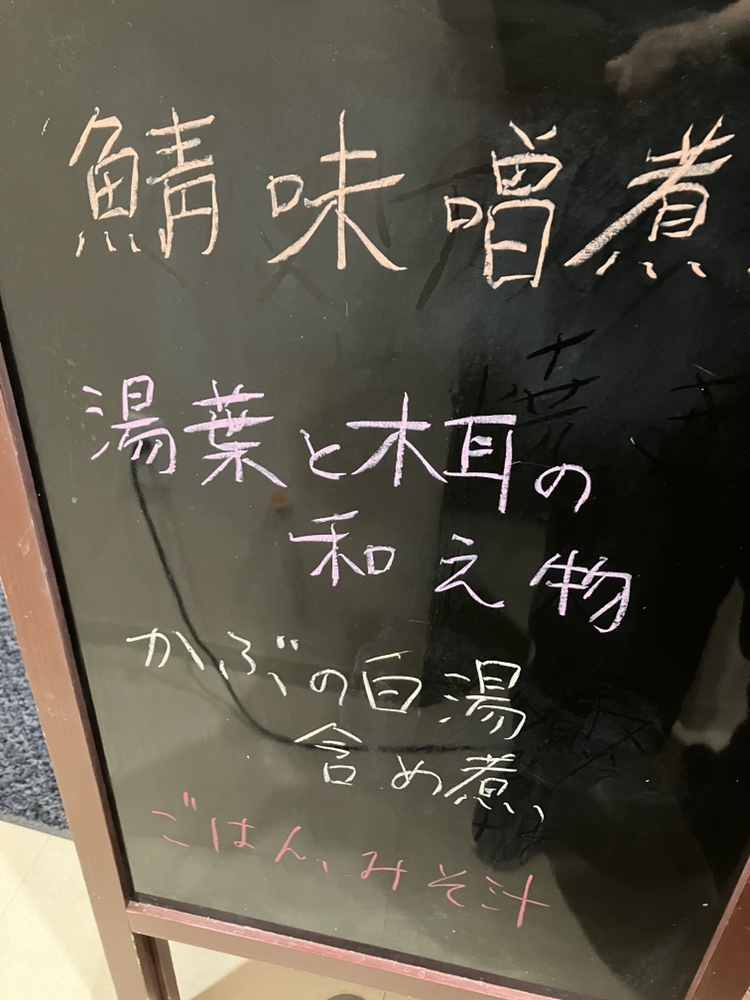 鯖味噌煮
湯葉と木耳の
和え物
かぶの白湯
含め煮、
ごはん、みそ汁